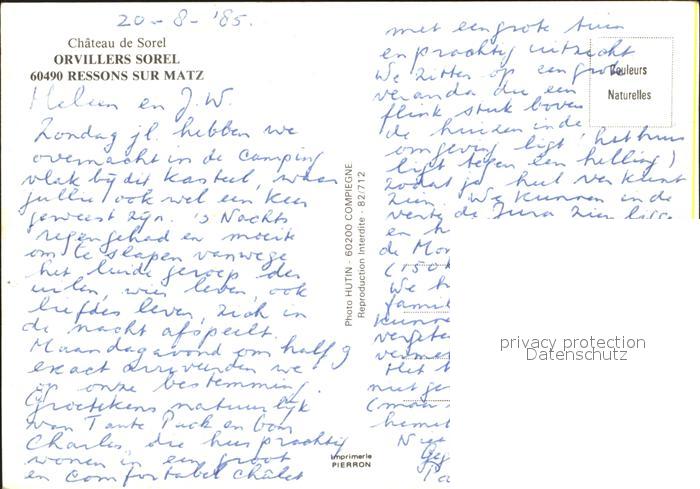 20-8-'85.
Château de Sorel
ORVILLERS SOREL
60490 RESSONS SUR MATZ
Heleen en J.W.
Zondag jl. hebben we
overnacht in de camping
vlak bij dit kasteel, waar
jullie ook wel een keer
geweest zijn. 's Nachts
regen gehad en moeite
om te slapen vanwege
het luide geroep der
uilen, wier leven, ook
liefdes leven, zich in
de nacht afspeelt.
Maandagavond om half 9
exact arriveerden we
op onze bestemming.
Groetekens natuurlijk
van Tante Puck en oom
Charles, die hier prachtig
wonen in een groot
en comfortabel châlet
met een grote tuin
en prachtig uitzicht
We zitten op een grote
veranda die een
flink stuk boven
de huizen in de
omgeving ligt (het huis
ligt tegen een helling)
zodat je heel ver kunt
zien. We kunnen in de
verte de Jura zien
en
de Mon
(150
We h
famil
kunne
verge
verme
Het
niet ge
(maar
hemel
Couleurs
Naturelles
Photo HUTIN - 60200 COMPIEGNE
Reproduction Interdite - 82/712
Imprimerie
PIERRON
privacy protection
Datenschutz